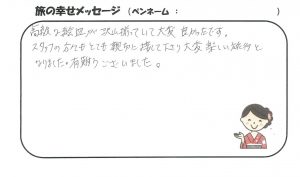 旅の幸せメッセージ （ペンネーム：　　　　　　）
高級な絵皿が沢山揃っていて大変良かったです。
スタッフの方々もとても親切に接して下さり大変楽しい旅行と
なりました。有難うございました。